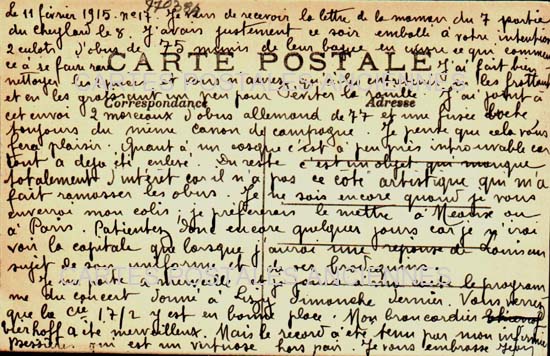 970384
Le 11 février 1915. n° 17. Je viens de recevoir la lettre de la maman du 7 partie
du Cheylard le 8. J'avais justement ce soir emballé à votre intention
2 culots d'obus de 75 munis de leur bague en cuivre ce qui commence
ce à se faire rare J'ai fait bien
CARTE POSTALE
nettoyer en les frottant
et en les grattant un peu pour éviter la rouille. J'ai joint à
Correspondance Adresse
cet envoi 2 morceaux d'obus allemand de 77 et une fusée
toujours du même canon de campagne. Je pense que cela vous
fera plaisir. Quant à un casque c'est à peu près introuvable car
tout a déjà été enlevé. Du reste c'est un objet qui manque
totalement d'intérêt car il n'a pas ce côté artistique qui m'a
fait ramasser les obus. Je ne sais encore quand je vous
enverrai mon colis, je préfèrerais le mettre à Meaux ou
à Paris. Patientez donc encore quelques jours car je n'irai
voir la capitale que lorsque j'aurai une réponse de Louis au
sujet de mon uniforme et
CARTES POSTALES ANCIENNES
Je me porte à merveille et joins à ma lettre le program
me du concert donné à Lizy dimanche dernier. Vous verrez
que la Cie 17/2 y est en bonne place. Mon brancardier
a été merveilleux. Mais le record a été tenu par mon infirmier
qui est un virtuose hors pair. Je vous embrasse Jean